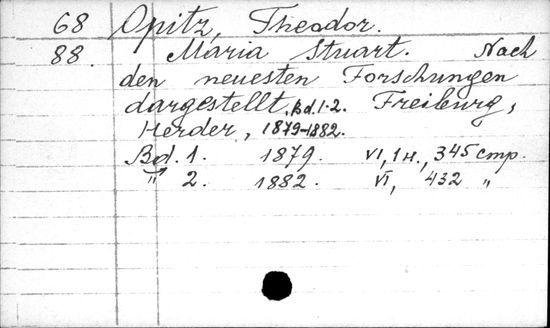 68 Opitz, Theodor.
88. Maria Stuart. Nach
den neuesten Forschungen
dargestellt, Bd. 1-2. Freiburg,
Herder, 1879-1882.
Bd. 1. 1879. VI, 1 н., 345 стр.
" 2. 1882. VI, 432 "